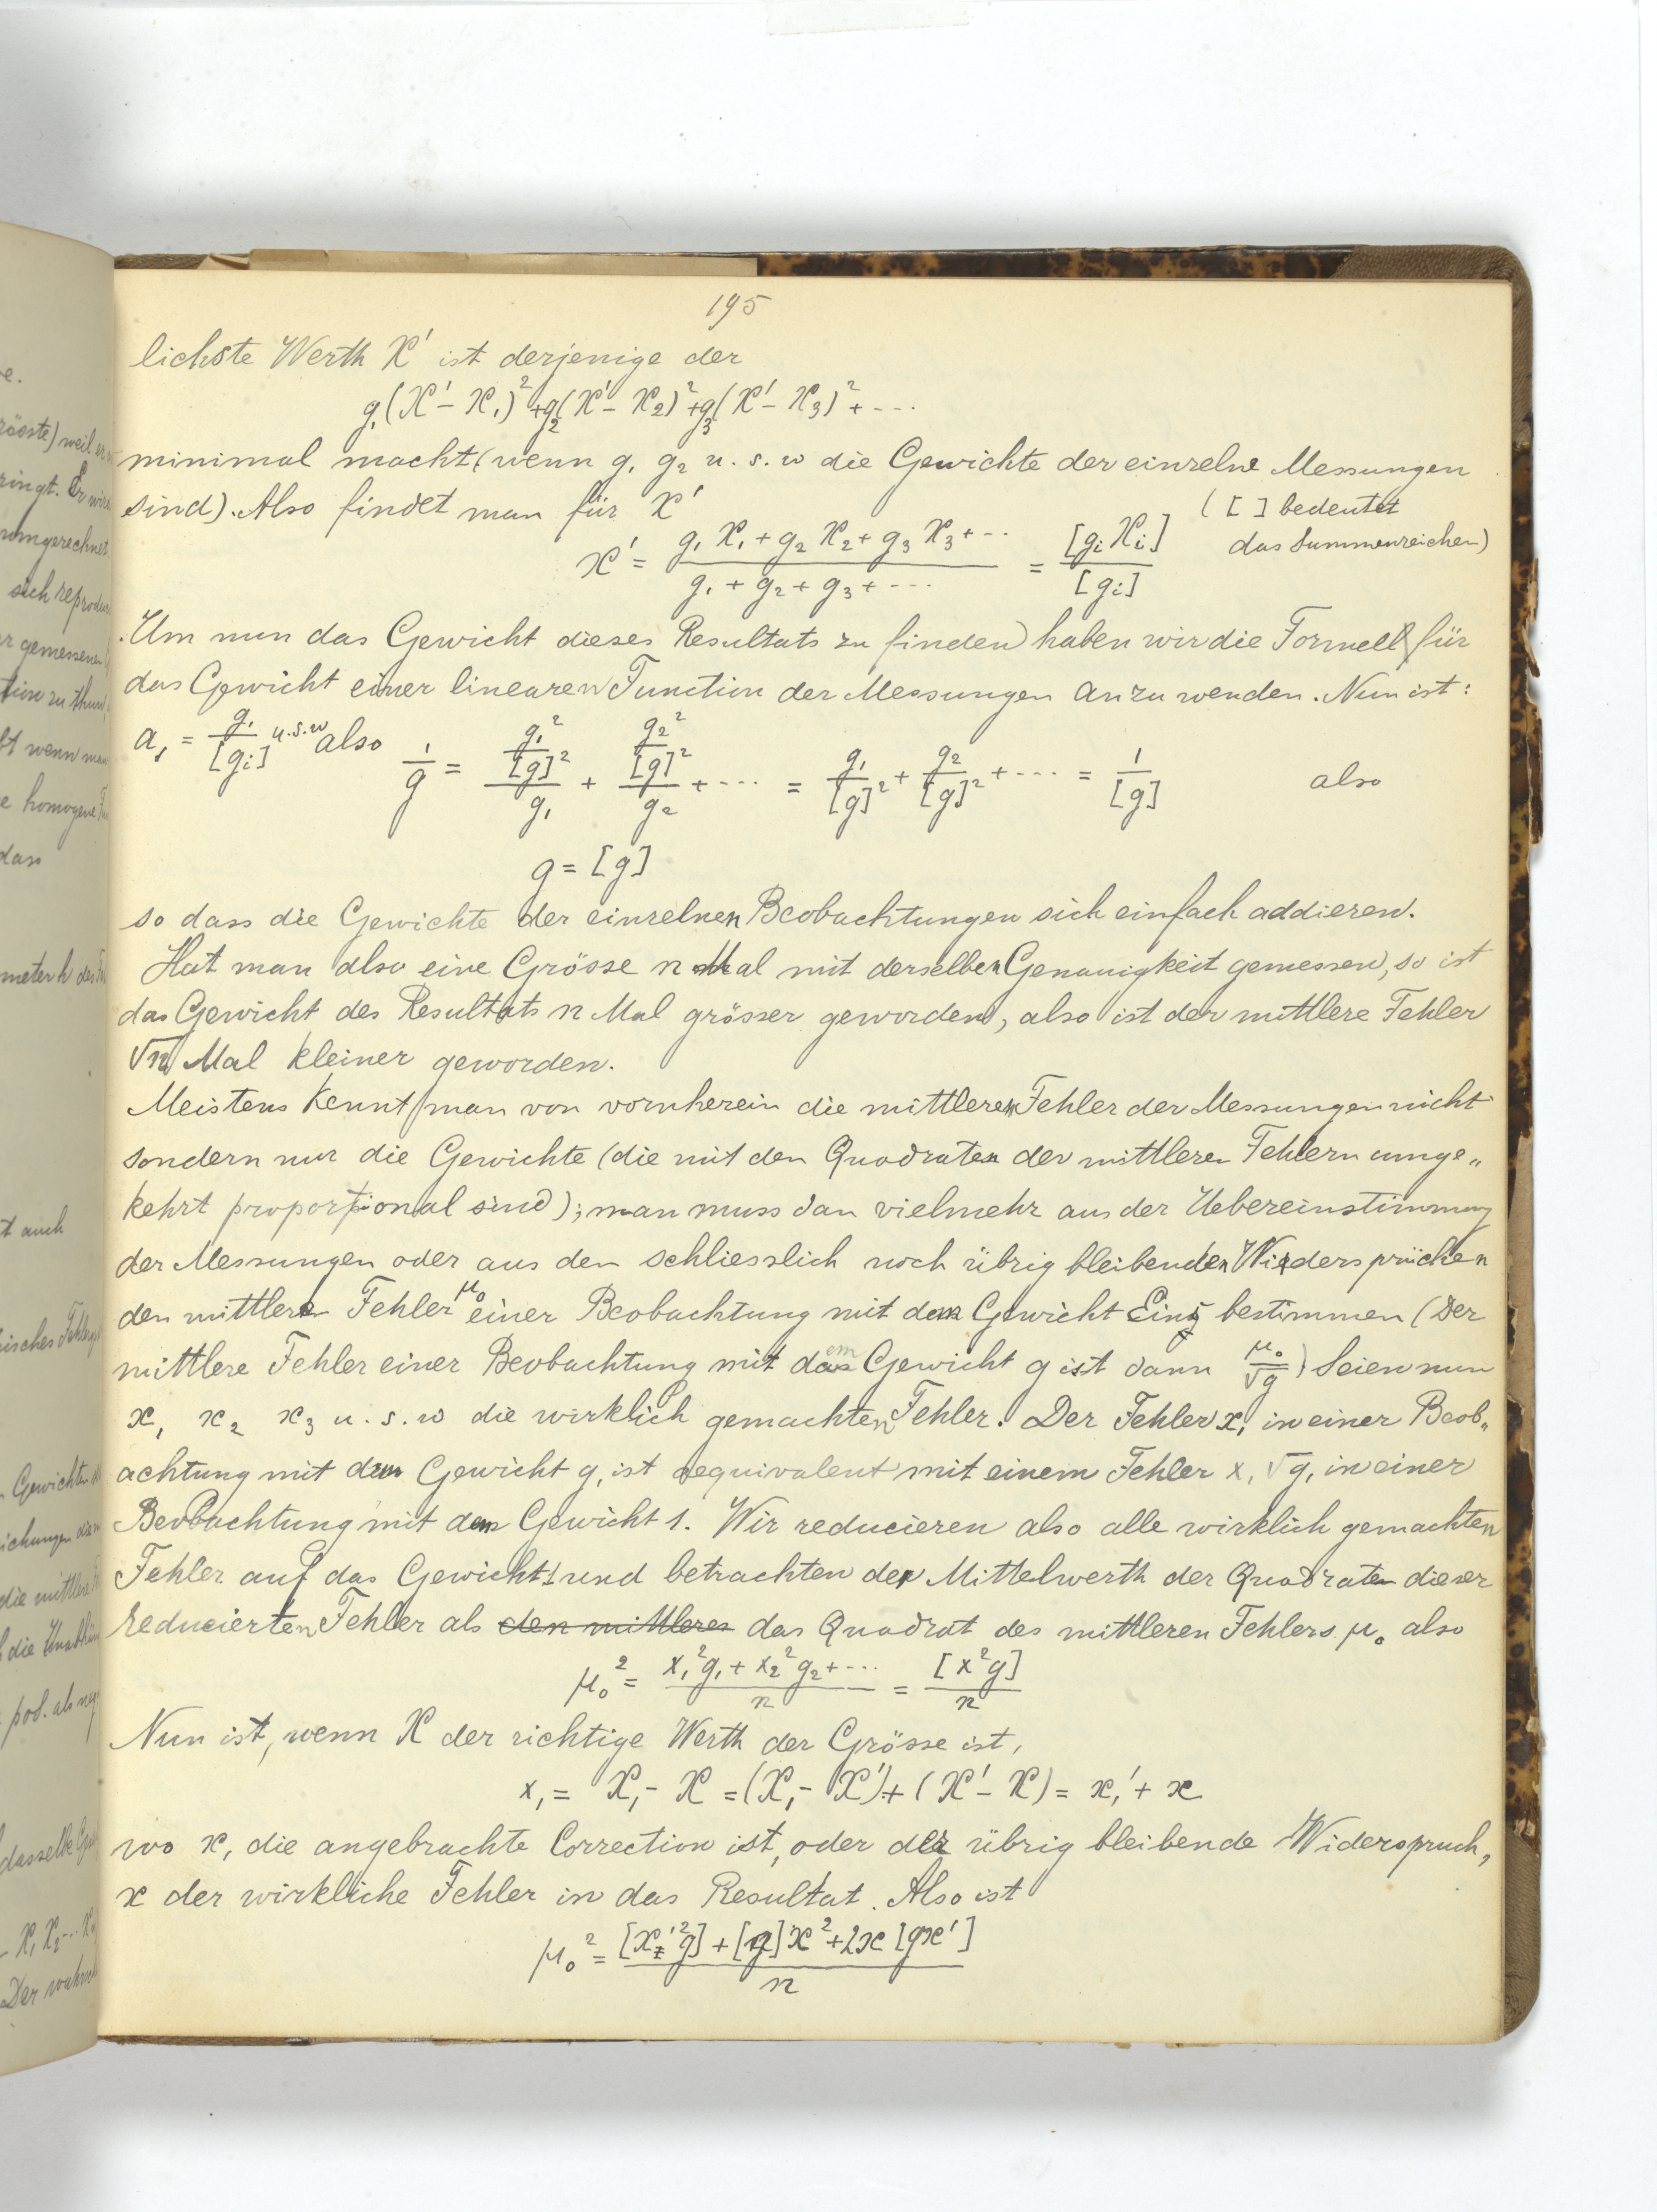 195
lichste Werth X' ist derjenige der
g₁(X'-X₁)²+g₂(X'-X₂)²+g₃(X'-X₃)²+---
minimal macht (wenn g₁ g₂ u.s.w die Gewichte der einzelne Messungen
sind). Also findet man für X'
([ ] bedeutet
das Summenzeichen)
x' = (g₁X₁+g₂X₂+g₃X₃+--)/(g₁+g₂+g₃+---) = [gᵢXᵢ]/[gᵢ]
Um nun das Gewicht dieses Resultats zu finden haben wir die Formell für
das Gewicht einer linearen Function der Messungen anzuwenden. Nun ist:
a₁ = g₁/[gᵢ] u.s.w also 1/g = (g₁²/[g]²)/g₁ + (g₂²/[g]²)/g₂ + --- = g₁/[g]² + g₂/[g]² + ---- = 1/[g] also
g = [g]
so dass die Gewichte der einzelnen Beobachtungen sich einfach addieren.
Hat man also eine Grösse n Mal mit derselben Genauigkeit gemessen, so ist
das Gewicht des Resultats n Mal grösser geworden, also ist der mittlere Fehler
√n Mal kleiner geworden.
Meistens kennt man von vornherein die mittleren Fehler der Messungen nicht
sondern nur die Gewichte (die mit den Quadraten der mittleren Fehlern umge„
kehrt proportional sind); man muss dan vielmehr aus der Uebereinstimmung
der Messungen oder aus den schliesslich noch übrig bleibenden Widersprüchen
den mittlere Fehler μ₀ einer Beobachtung mit dem Gewicht Eins bestimmen (Der
mittlere Fehler einer Beobachtung mit dem Gewicht g ist dann μ₀/√g) Seien nun
x₁ x₂ x₃ u.s.w die wirklich gemachten Fehler. Der Fehler x₁ in einer Beob„
achtung mit dem Gewicht g₁ ist aequivalent mit einem Fehler x₁√g₁ in einer
Beobachtung mit dem Gewicht 1. Wir reducieren also alle wirklich gemachten
Fehler auf das Gewicht 1 und betrachten der Mittelwerth der Quadraten dieser
reducierten Fehler als den mittleren das Quadrat des mittleren Fehlers μ₀ also
μ₀² = (x₁²g₁+x₂²g₂+---)/n = [x²g]/n
Nun ist, wenn X der richtige Werth der Grösse ist,
x₁ = X₁-X = (X₁-X')+(X'-X) = x₁'+x
wo x₁ die angebrachte Correction ist, oder der übrig bleibende Widerspruch,
x der wirkliche Fehler in das Resultat. Also ist
μ₀² = ([x'²g]+[g]x²+2x[gx'])/n